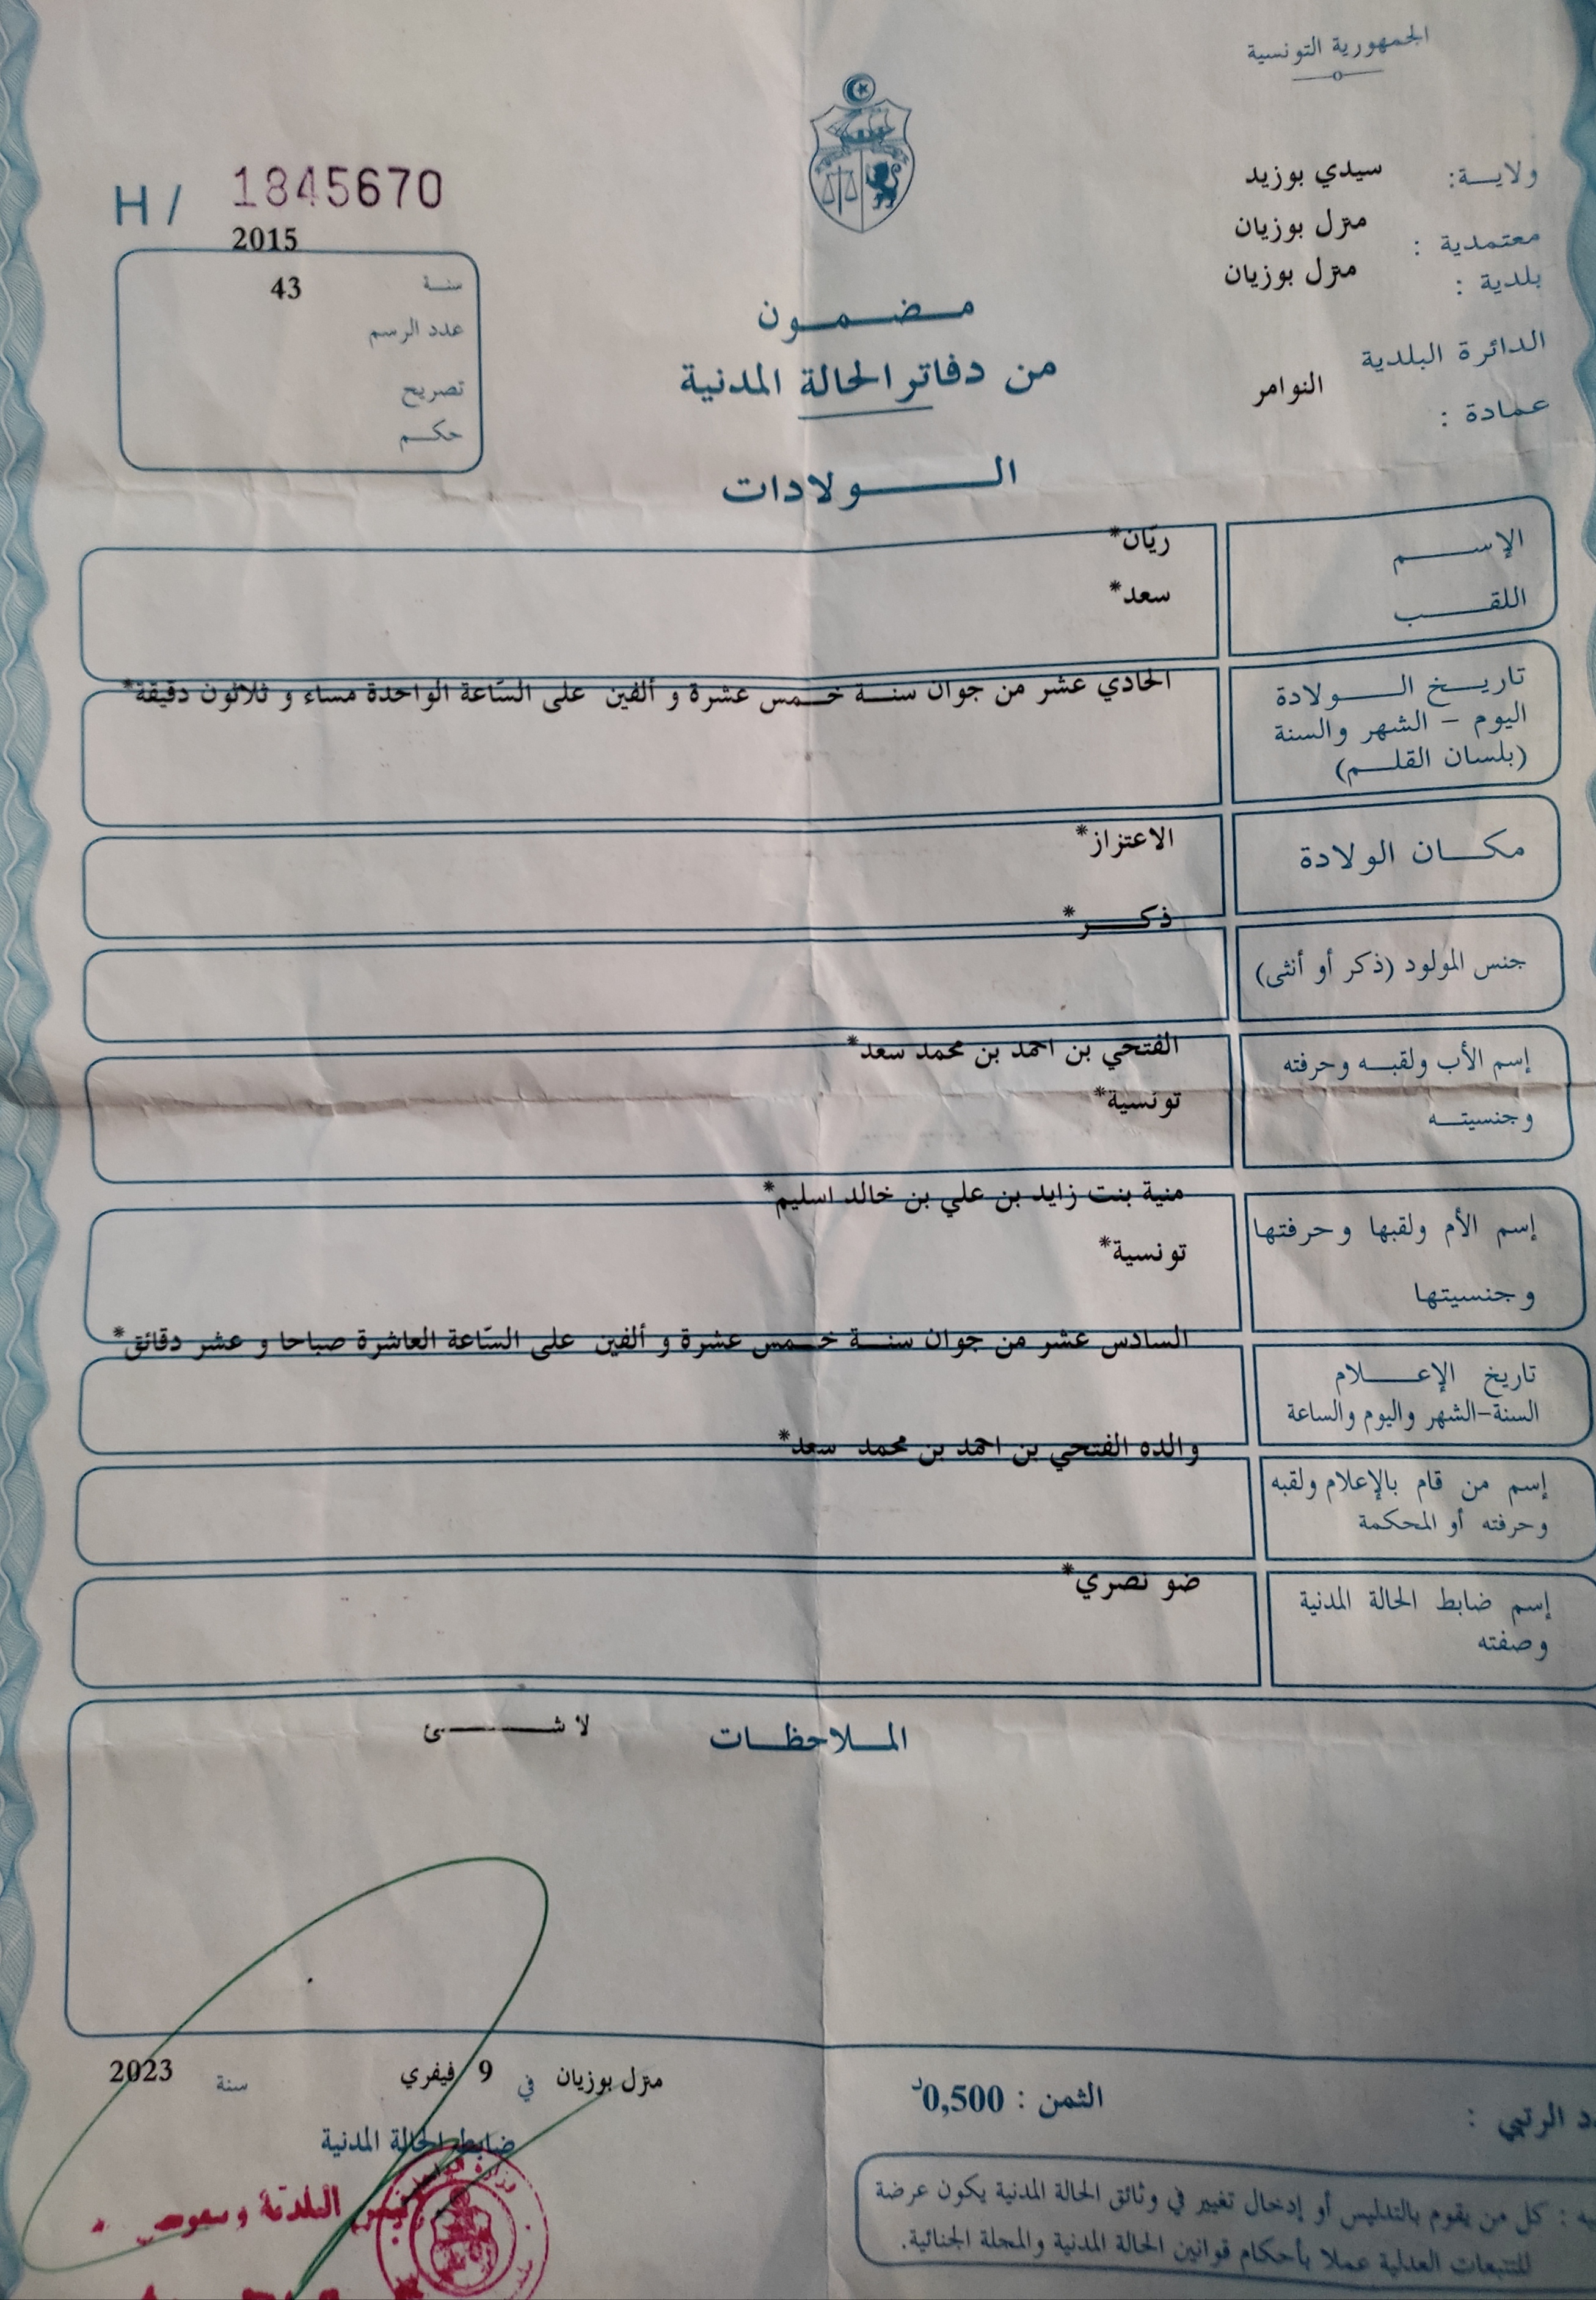 الجمهورية التونسية
ولايـــة: سيدي بوزيد
معتمدية : منزل بوزيان
بلدية : منزل بوزيان
الدائرة البلدية
عمادة : النوامر
H / 1845670
2015
سنة 43
عدد الرسم
تصريح
حكم
مـضـمـون
من دفاتر الحالة المدنية
الـــولادات
الإســـم ريّان*
اللقـــب سعد*
تاريـخ الـــولادة الحادي عشر من جوان سنـة خـمس عشرة و ألفين على السّاعة الواحدة مساء و ثلاثون دقيقة*
اليوم - الشهر والسنة
(بلسان القلـم)
مكـان الولادة الاعتزاز*
ذكـــر*
جنس المولود (ذكر أو أنثى)
إسم الأب ولقبـه وحرفته الفتحي بن احمد بن محمد سعد*
وجنسيتـه تونسية*
منية بنت زايد بن علي بن خالد اسليم*
إسم الأم ولقبها وحرفتها
تونسية*
وجنسيتها
السادس عشر من جوان سنـة خـمس عشرة و ألفين على السّاعة العاشرة صباحا و عشر دقائق*
تاريخ الإعـــلام
السنة-الشهر واليوم والساعة
والده الفتحي بن احمد بن محمد سعد*
إسم من قام بالإعلام ولقبه
وحرفته أو المحكمة
ضو نصري*
إسم ضابط الحالة المدنية
وصفته
الملاحظات لا شـــئ
منزل بوزيان في 9 فيفري سنة 2023
ضابط الحالة المدنية
رئيس البلدية
الثمن : 0,500د
الرتبي :
: كل من يقوم بالتدليس أو إدخال تغيير في وثائق الحالة المدنية يكون عرضة
للتتبعات العدلية عملا بأحكام قوانين الحالة المدنية والمجلة الجنائية.